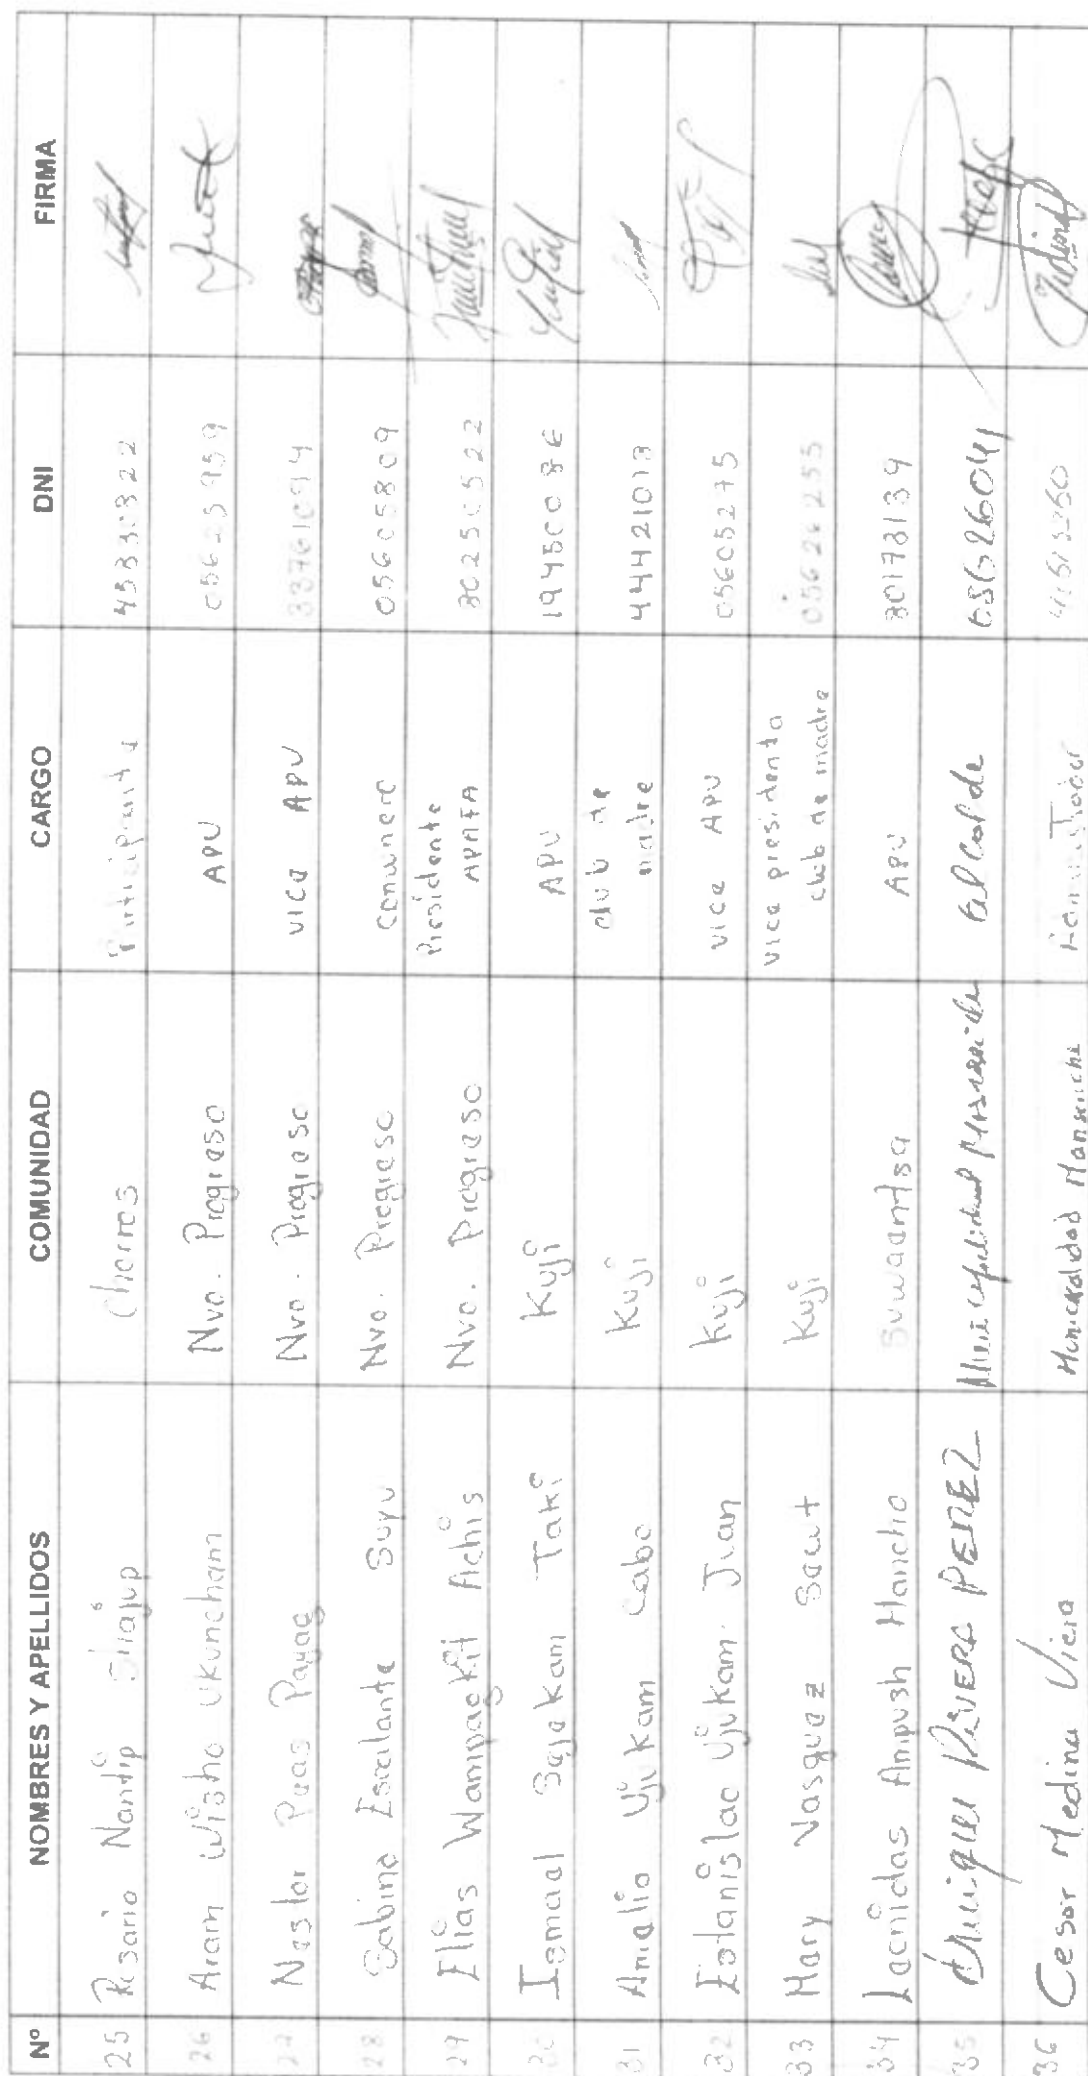 Nº NOMBRES Y APELLIDOS COMUNIDAD CARGO DNI FIRMA
25 Rosario Nantip Chorros 45330322
26 Aram Wisho Ukuncham Nvo. Progreso APU
27 Nestor Paas Payag Nvo. Progreso vice APU
28 Sabino Escalante Suyu Nvo. Progreso comunero 05605809
29 Elias Wampagkit Achis Nvo. Progreso Presidente
APAFA 80250522
30 Ismael Sajekam Taki Kuji APU 19450086
31 Amalio Ujukam Cabo Kuji club de
madre 44421013
32 Estanislao Ujukam Juan Kuji vice APU 05605275
33 Mary Vasquez Sawt Kuji vice presidenta
club de madre 05626255
34 Leonidas Ampush Mancho APU 80173139
35 RIVERA PEREZ Municipalidad Manseriche alcalde
36 Cesar Medina Viera Municalidad Manseriche